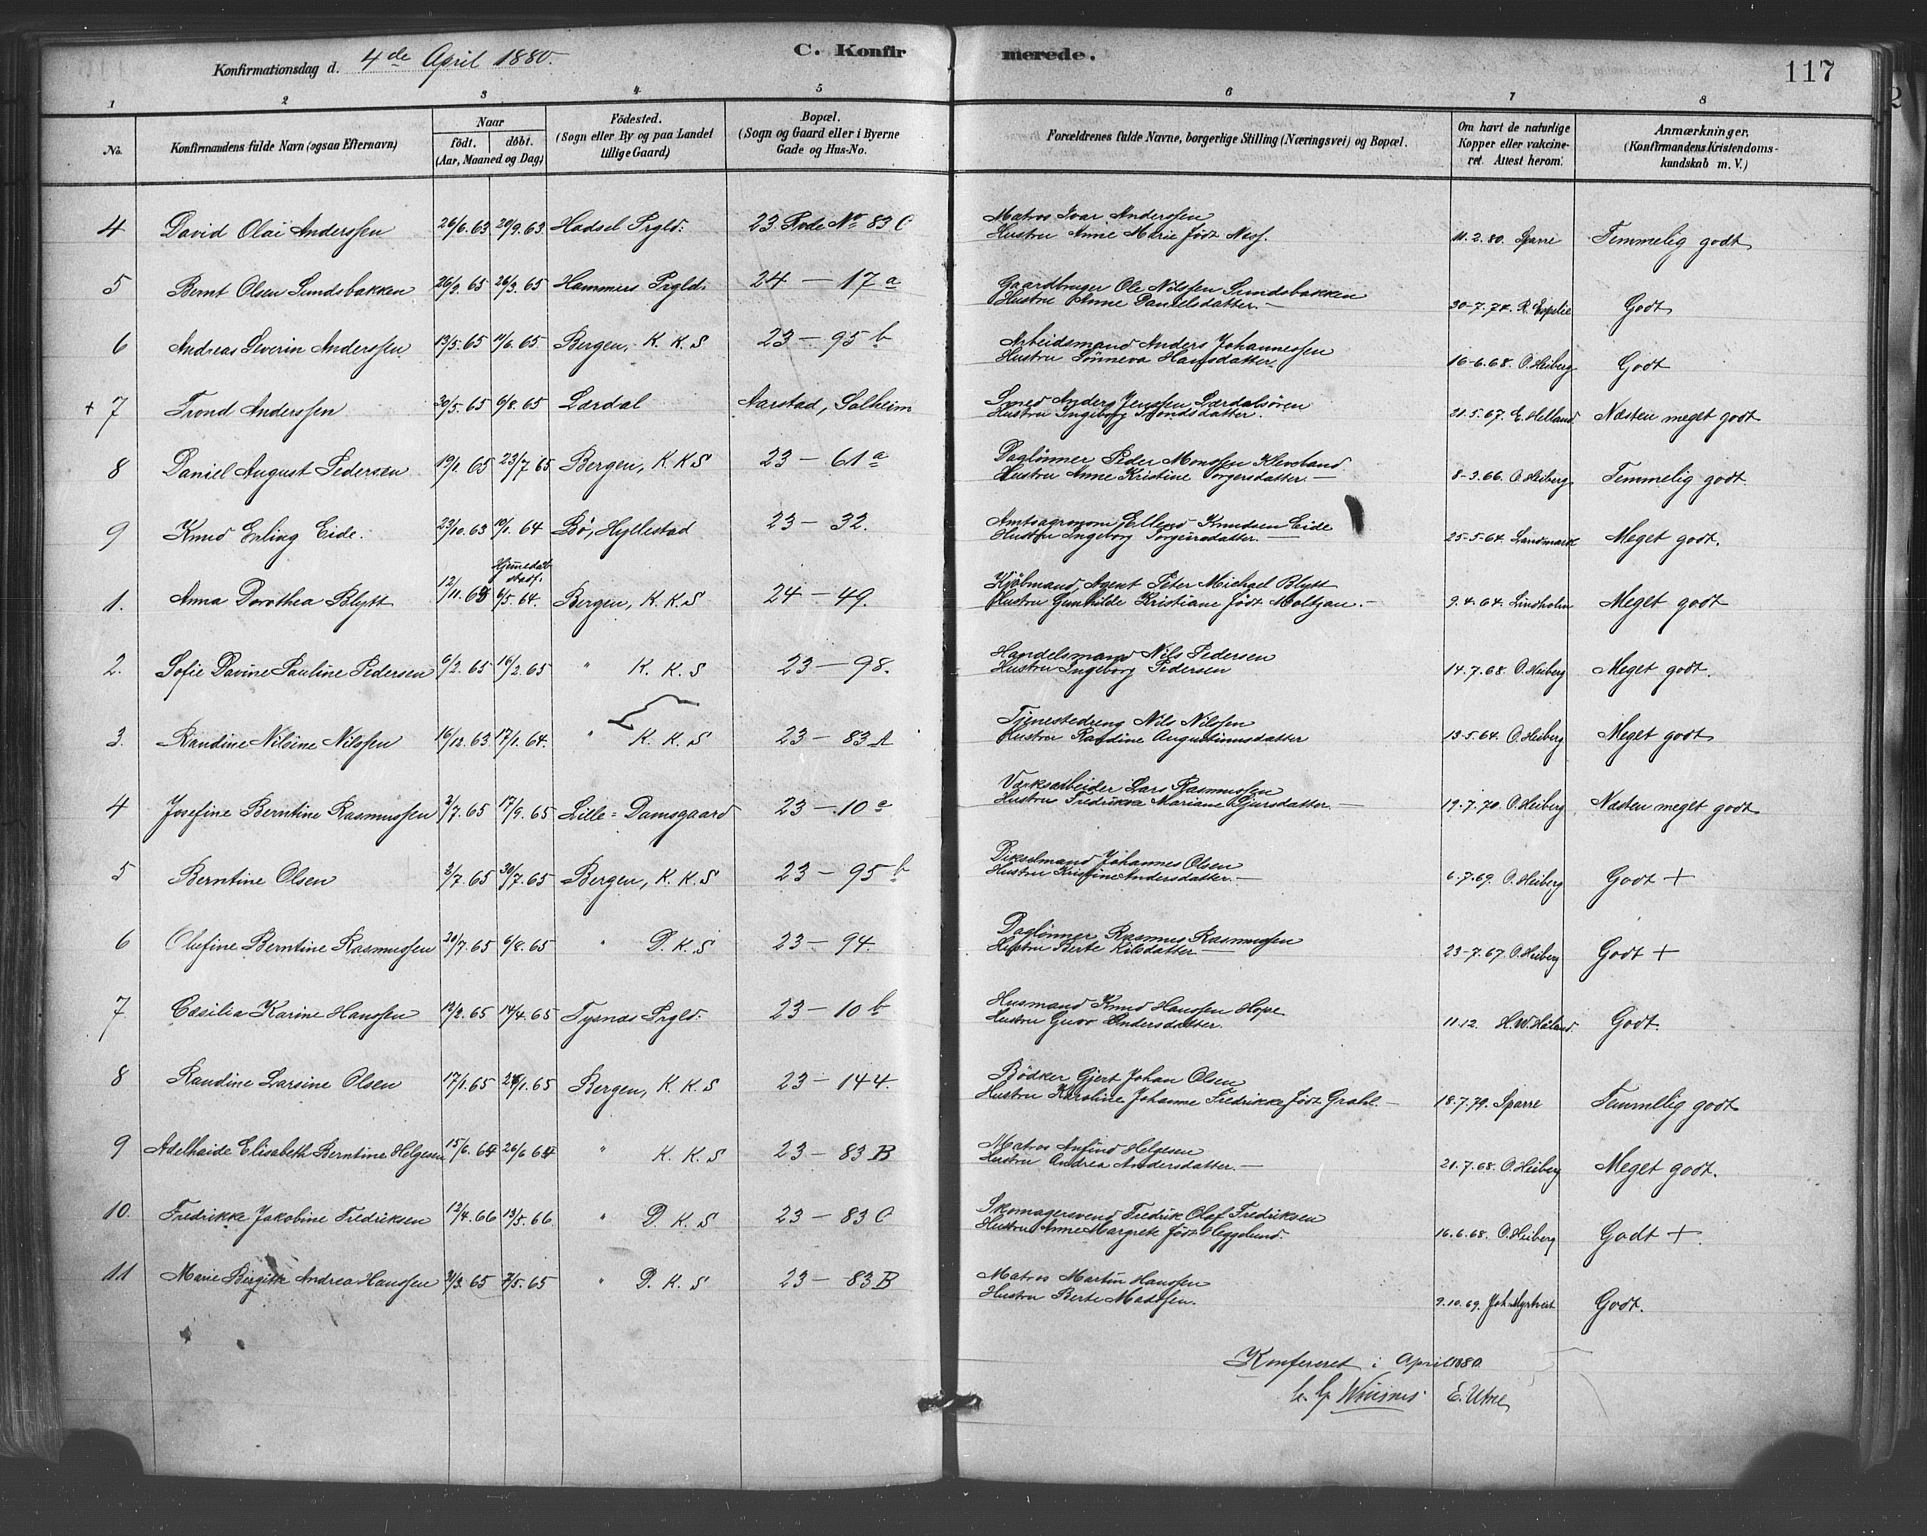 C. Konfirmerede.
117
Konfirmationsdag d. 4de April 1880.
1 2 3 4 5 6 7 8
No. Konfirmandens fulde Navn (ogsaa Efternavn)
Naar født. døbt. (Aar, Maaned og Dag)
Fødested. (Sogn eller By og paa Landet tillige Gaard)
Bopæl. (Sogn og Gaard eller i Byerne Gade og Hus-No.
Forældrenes fulde Navne, borgerlige Stilling (Næringsvei) og Bopæl.
Om havt de naturlige Kopper eller vakcineret. Attest herom.
Anmærkninger. (Konfirmandens Kristendomskundskab m. V.)
4 David Olai Anderssen 26/6.63 20/9.63 Hadsel Prgld: 23 Rode No 83 C
Matros Ivar Anderssen
Hustru Anne Marie født Ness. 11.2.80. Sparre Temmelig godt
5 Bernt Olsen Sundsbakken 26/2.65 26/3.65 Hammers Prgld: 24 — 17 a
Gaardbruger Ole Nilssen Sundsbakken
Hustru Anne Danielsdatter. 30-7.74. Godt
6 Andreas Severin Anderssen 13/5.65 11/6.65. Bergen, K. K. S 23 — 95 b
Arbeidsmand Anders Johannessen
Hustru Sønneva Hansdatter. 16-6.68. O. Heiberg Godt
+ 7 Trond Anderssen 30/5.65 6/8.65 Lærdal Aarstad, Solheim
Smed Anders Jenssen Lærdalsøren
Hustru Ingeborg Trondsdatter. 21.5.67. E. Helland. Næsten meget godt
8 Daniel August Pedersen 19/1.65 23/7.65 Bergen, K. K. S 23 — 61 a
Daglønner Peder Monssen Kleveland.
Hustru Anne Kristine Torgersdatter. — 8-3.66. O. Heiberg Temmelig godt.
9 Knud Erling Eide. 23/10.63 10/1.64 Bø, Hyllestad 23 — 32.
Amtsagronom Ellend Knudsen Eide
Hustru Ingeborg Torgeirsdatter. — 25-5.64. Landmark Meget godt.
Hjemmedøbt stadf.
1. Anna Dorothea Blytt 12/11.63 6/5.64. Bergen, K. K. S 24 — 49.
Kjøbmand, Agent Peter Michael Blytt
Hustru Gunhilde Kristiane født Moltzau. — 9.4.64. Lindholm Meget godt
2. Sofie Davine Pauline Pedersen 6/2.65 16/2.65 " K. K. S 23 — 98.
Handelsmand Nils Pedersen
Hustru Ingeborg Pedersen 14.7.68. O. Heiberg Meget godt.
3. Randine Nilsine Nilssen 16/12.63 17/1.64. " K. K. S 23 — 83 A
Tjenestedreng Nils Nilssen
Hustru Randine Augustinusdatter 13.5.64. O. Heiberg Meget godt
4 Josefine Berntine Rasmussen 2/7.65 17/9.65 Lille-Damsgaard 23 — 10 a
Værksarbeider Lars Rasmussen
Hustru Fredrikke Mariane Gjursdatter. — 19.7.70. O. Heiberg Næsten meget godt
5 Berntine Olsen 2/7.65 30/7.65 Bergen, K. K. S 23 — 95 b
Johannes Olsen
Hustru Kristine Andersdatter. — 6.7.69. O. Heiberg Godt +
6 Olefine Berntine Rasmussen 20/7.65 6/8.65 " D. K. S 23 — 94.
Daglønner Rasmus Rasmussen
Hustru Berte Nilsdatter — 23-7.67. O. Heiberg Godt +
7 Cæsilia Karine Hanssen 12/2.65 17/4.65 Tysnæs Prgld. 23 — 10 b
Husmand Knud Hanssen Hope
Hustru Guro Andersdatter. 11.12. Godt.
8 Randine Larsine Olsen 17/1.65 25/1.65 Bergen, K. K. S 23 — 144.
Bødker Gjert Johan Olsen
Hustru Karoline Johanne Fredrikke født Grahl. — 18.7.79. Sparre Temmelig godt
9 Adelhaide Elisabeth Berntine Helgesen 15/6.64 26/6.64 " K. K. S 23 — 83 B
Matros Anfind Helgesen
Hustru Andrea Andersdatter. — 21.7.68. O. Heiberg Meget godt.
10. Fredrikke Jakobine Fredriksen 12/4.66 13/5.66. " D. K. S 23 — 83 C
Skomagersvend Fredrik Olaf Fredriksen
Hustru Anne Margrete født Heggelund. 16.6.68. O. Heiberg Godt +.
11 Marie Birgitte Andrea Hanssen 3/3.65 7/5.65 " D. K. S 23 — 83 B
Matros Martin Hanssen
Hustru Berte Madssen. 9.10.69. Joh. Myrtveit Godt.
Konfereret i April 1880.
E. Utne